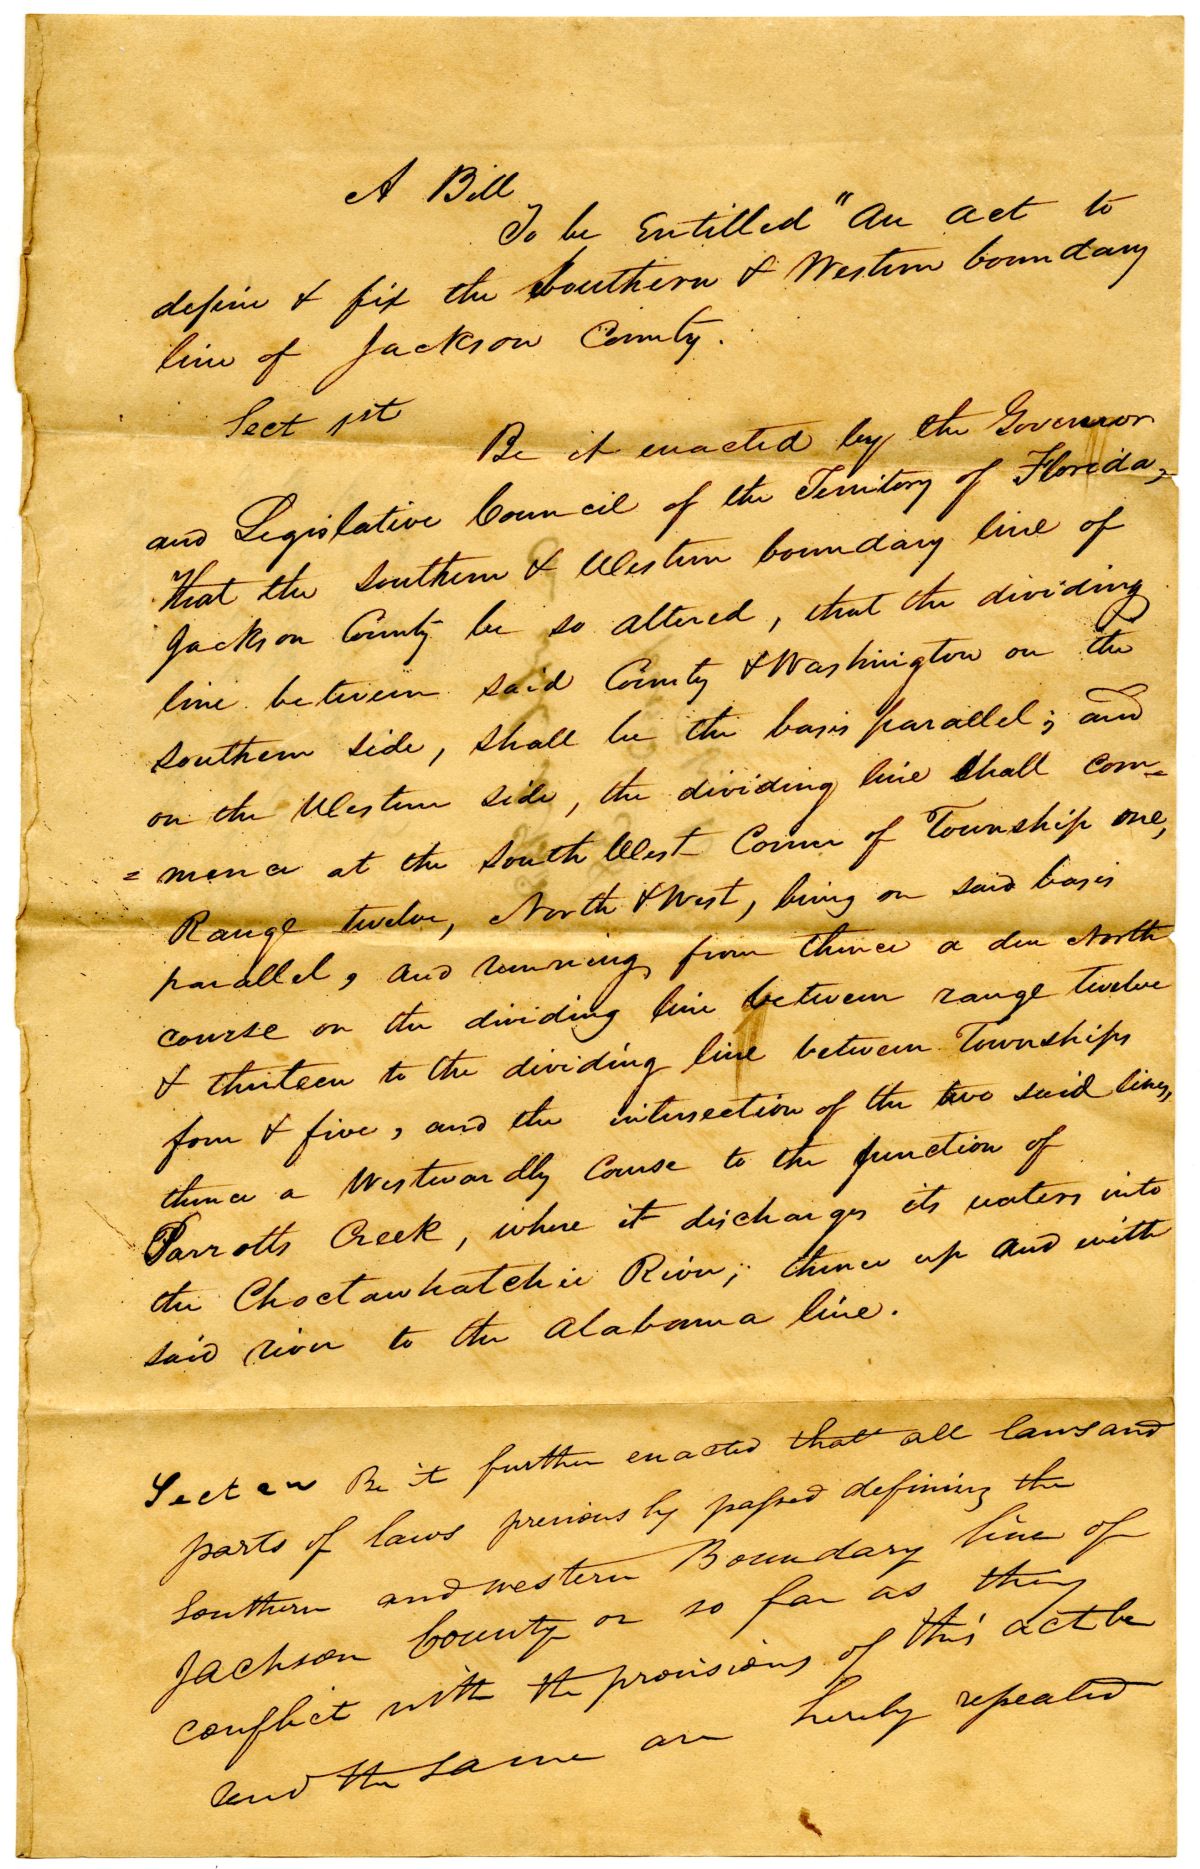 A Bill
To be Entilled "An act to
define & fix the Southern & Western boundary
line of Jackson County.
Sect 1st
Be it enacted by the Governor
and Legislative Council of the Territory of Florida,
That the southern & Western boundary line of
Jackson County be so altered, that the dividing
line between said County & Washington on the
southern side, shall be the basis parallel; and
on the Western side, the dividing line shall com=
=mence at the South West Corner of Township one,
Range twelve, North & West, being on said basis
parallel, and running from thence a due North
course on the dividing line between range twelve
& thirteen to the dividing line between Townships
four & five, and the intersection of the two said lines,
thence a Westwardly Course to the junction of
Parrotts Creek, where it discharges its waters into
the Choctawhatchie River; thence up and with
said river to the Alabama line.
Sect 2n Be it further enacted that all laws and
parts of laws previously passed defining the
Southern and western Boundary line of
Jackson County or so far as they
conflict with the provisions of this act be
and the same are hereby repealed